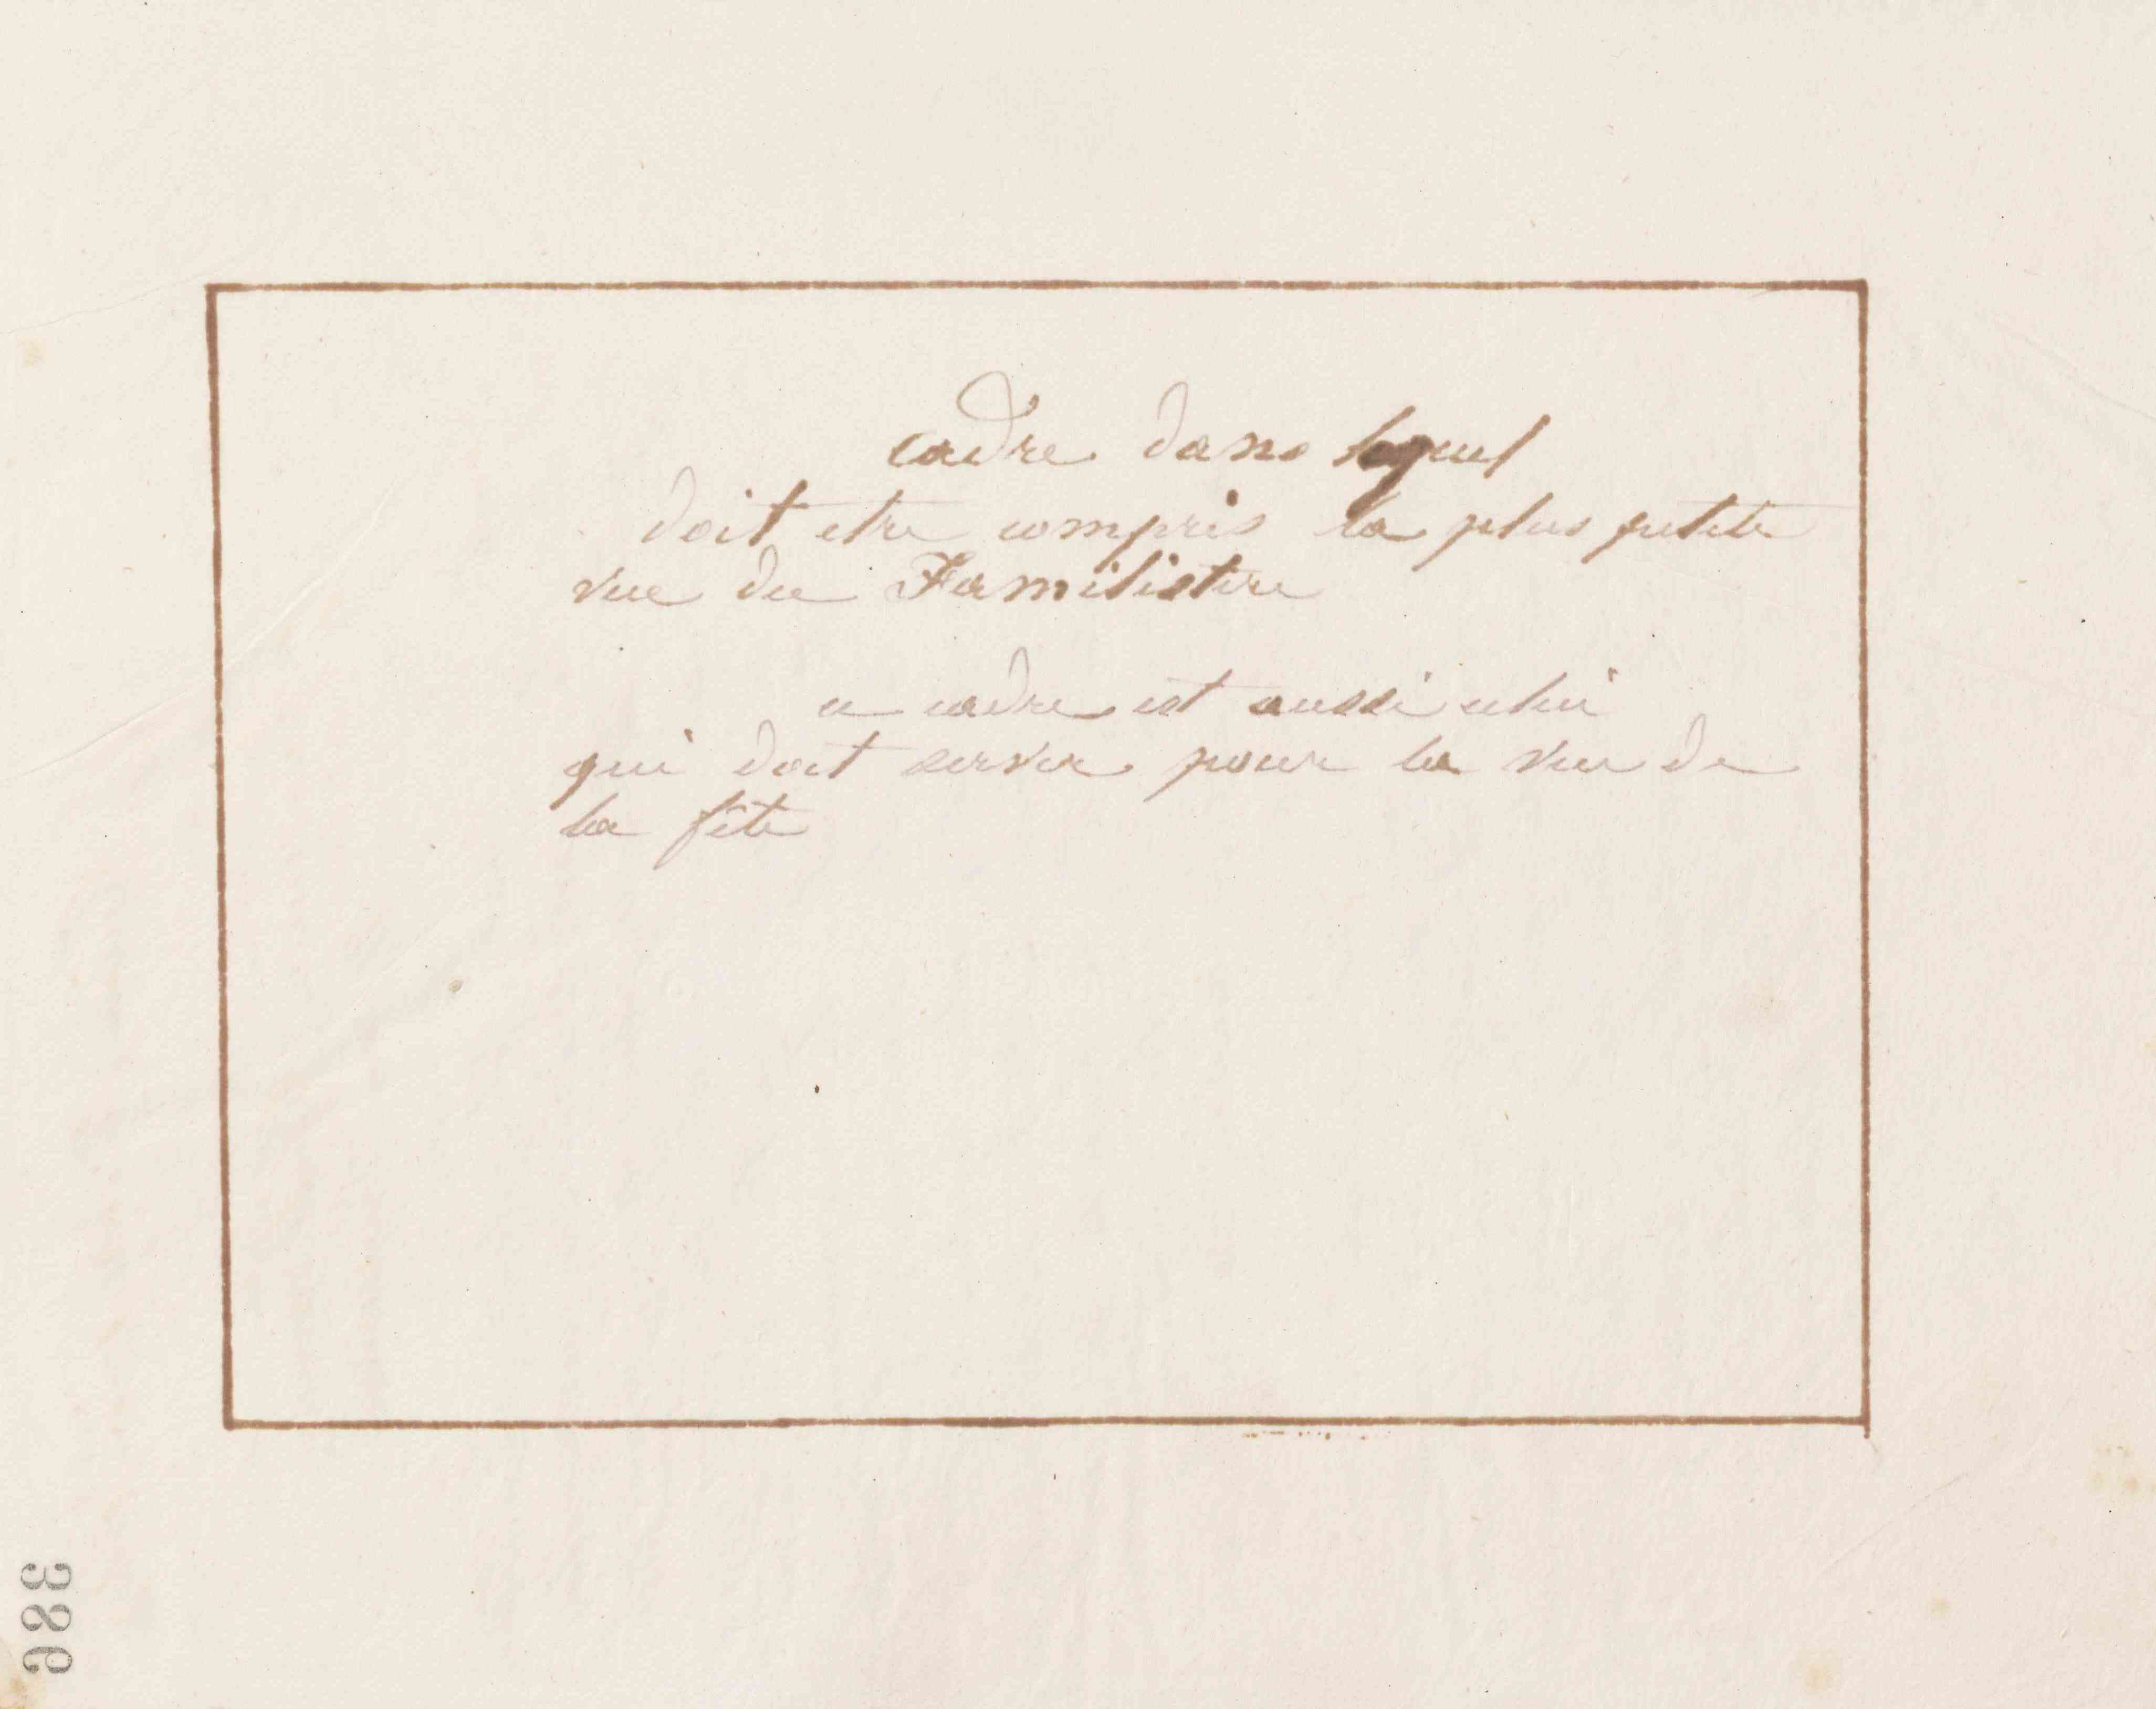 Cadre dans lequel
doit etre compris la plus petite
vue du Familistere
ce cadre est aussi celui
qui doit servir pour la vue de
la fête
386